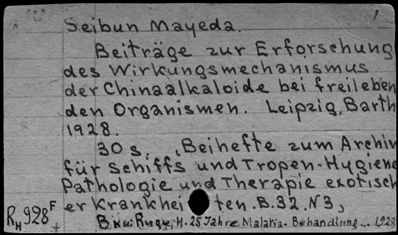 Seibun Mayeda.
Beiträge zur Erforschung
des Wirkungsmechanismus
der Chinaalkaloide bei freileben
den Organismen. Leipzig, Barth
1928.
30 s., Beihefte zum Archiv
für Schiffs und Tropen-Hygiene
Pathologie und Therapie exotisch
er Krankhei ten. B.32. N3,
H. 25 Jahre Malaria-Behandlung... 1928
RH 928 F